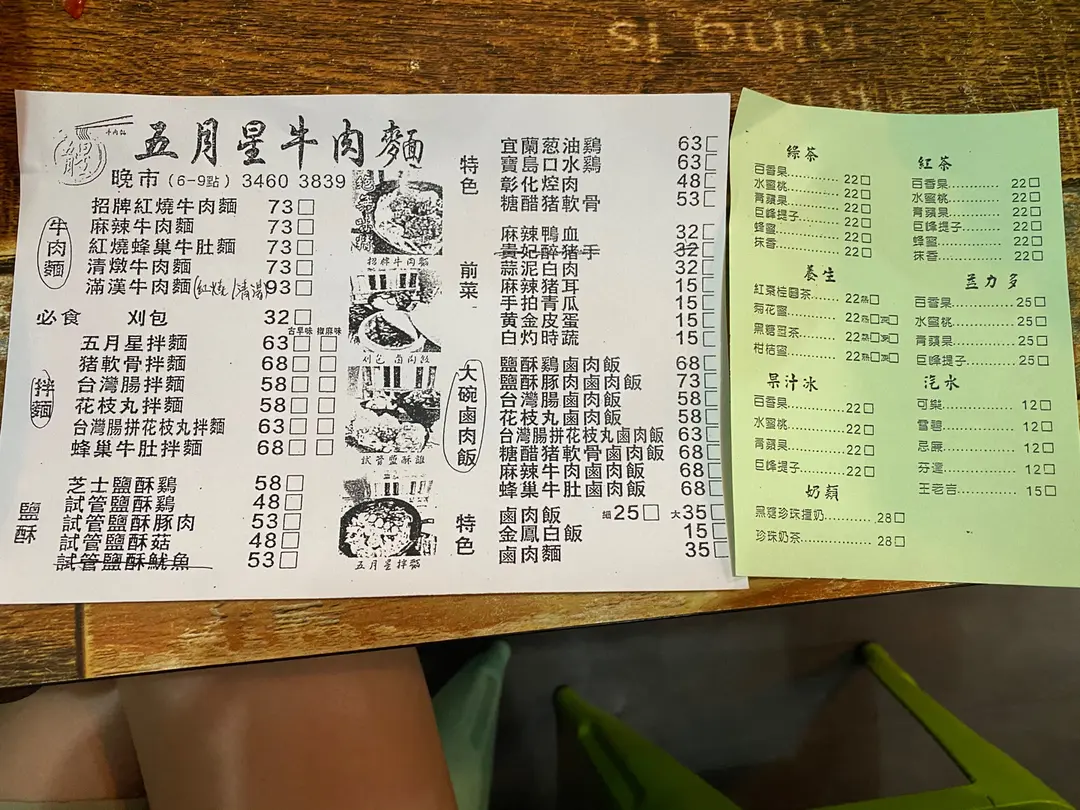 si bun
五月星牛肉麵
晚市(6-9點) 3460 3839
牛肉麵
招牌紅燒牛肉麵 73□
麻辣牛肉麵 73□
紅燒蜂巢牛肚麵 73□
清燉牛肉麵 73□
滿漢牛肉麵(紅燒/清湯) 93□
必食 刈包 32□
古早味 椒麻味
拌麵
五月星拌麵 63□□
猪軟骨拌麵 68□□
台灣腸拌麵 58□□
花枝丸拌麵 58□□
台灣腸拼花枝丸拌麵 63□□
蜂巢牛肚拌麵 68□□
鹽酥
芝士鹽酥鷄 58□
試管鹽酥鷄 48□
試管鹽酥豚肉 53□
試管鹽酥菇 48□
試管鹽酥魷魚 53□
招牌牛肉麵
刈包 鹵肉飯
試管鹽酥雞
五月星拌麵
特色
宜蘭葱油鷄 63□
寶島口水鷄 63□
彰化焢肉 48□
糖醋猪軟骨 53□
前菜
麻辣鴨血 32□
貴妃醉猪手 32□
蒜泥白肉 32□
麻辣猪耳 15□
手拍青瓜 15□
黄金皮蛋 15□
白灼時蔬 15□
大碗鹵肉飯
鹽酥鷄鹵肉飯 68□
鹽酥豚肉鹵肉飯 73□
台灣腸鹵肉飯 58□
花枝丸鹵肉飯 58□
台灣腸拼花枝丸鹵肉飯 63□
糖醋猪軟骨鹵肉飯 68□
麻辣牛肉鹵肉飯 68□
蜂巢牛肚鹵肉飯 68□
特色
鹵肉飯 細25□ 大35□
金鳳白飯 15□
鹵肉麵 35□
綠茶
百香果............ 22□
水蜜桃............ 22□
青蘋果............ 22□
巨峰提子......... 22□
蜂蜜............... 22□
抹香............... 22□
養生
紅棗桂圓茶...... 22熱□
菊花蜜............ 22熱□凍□
黑糖薑茶......... 22熱□凍□
柑桔蜜............ 22熱□凍□
果汁冰
百香果............ 22□
水蜜桃............ 22□
青蘋果............ 22□
巨峰提子......... 22□
奶類
黑糖珍珠撞奶............ 28□
珍珠奶茶.................. 28□
紅茶
百香果............ 22□
水蜜桃............ 22□
青蘋果............ 22□
巨峰提子......... 22□
蜂蜜............... 22□
抹香............... 22□
益力多
百香果............ 25□
水蜜桃............ 25□
青蘋果............ 25□
巨峰提子......... 25□
汽水
可樂............... 12□
雪碧............... 12□
忌廉............... 12□
芬達............... 12□
王老吉............ 15□